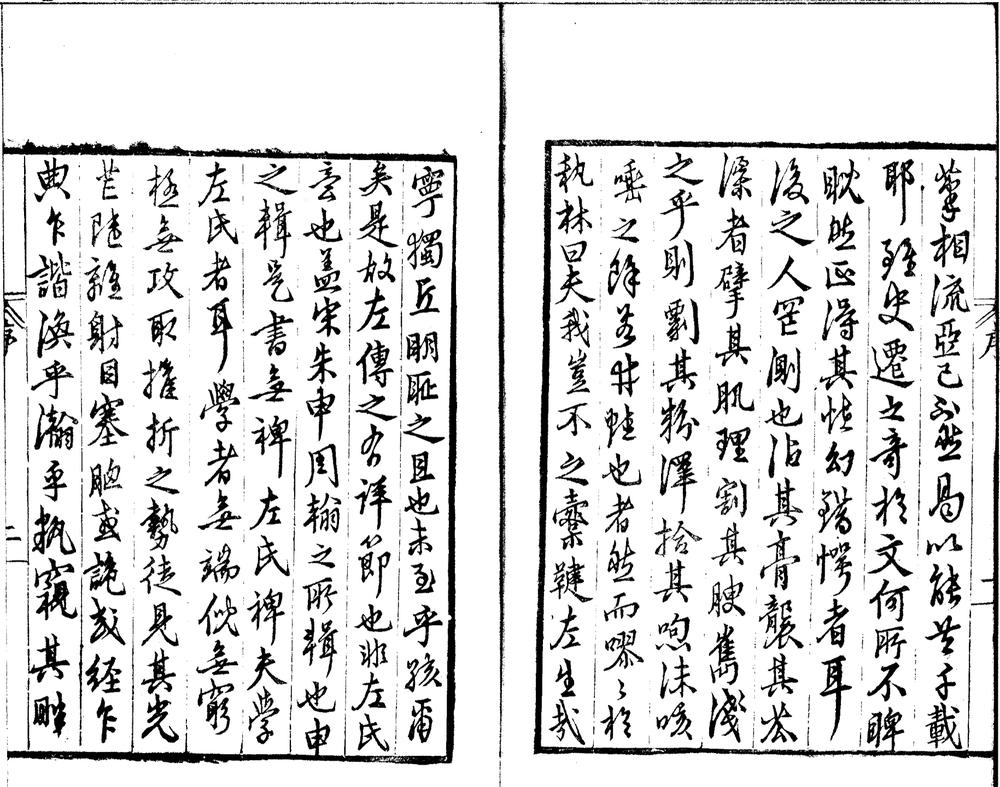 相流亞已不然曷以能芒千載
耶雖史遷之奇於文何所不睥
然正得其怪幻錯愕者耳
後之人罔測也沾其膏襲其
深者擘其肌理割其腴雋淺
之乎則剽其粉澤拾其呴沫咳
唾之餘若井蛙也者然而嘐〻於
埶林曰夫我豈不之櫜鞬左生哉
序
寧獨丘明恥之且也未至乎孩爾
矣是故左傳之有詳節也非左氏
言也蓋宋朱申周翰之所輯也申
之輯是書無裨左氏裨夫學
左氏者耳學者無端倪無窮
極無攻取摧折之勢徒見其光
芒陸離射目塞聰或詭或經乍
典乍諧渙乎瀚乎孰窺其畔
序
二